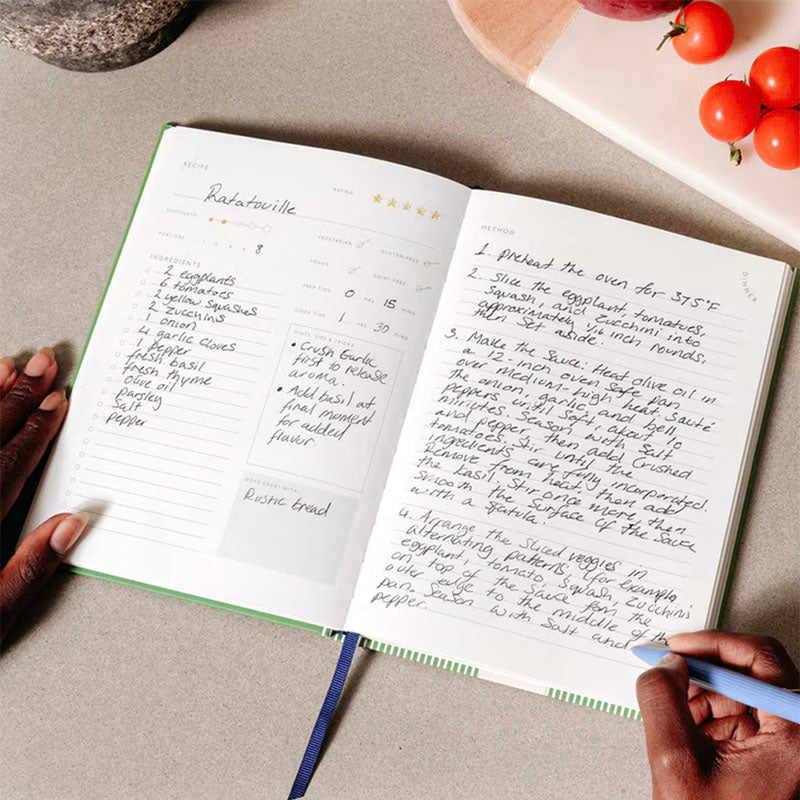 RECIPE
RATING
Ratatouille
DIFFICULTY
PORTIONS
8
VEGETARIAN
GLUTEN-FREE
VEGAN
DAIRY-FREE
PREP TIME 0 HRS 15 MINS
COOK TIME 1 HRS 30 MINS
INGREDIENTS
2 eggplants
6 tomatoes
2 yellow squashes
2 zucchins
1 onion
4 garlic cloves
1 pepper
fresh basil
fresh thyme
olive oil
parsley
salt
pepper
NOTES, TIPS & TRICKS
• Crush Garlic
first to release
aroma.
• Add basil at
final moment
for added
flavor.
GOES GREAT WITH
Rustic bread
METHOD
DINNER
1. Preheat the oven for 375°F
2. Slice the eggplant, tomatoes,
squash, and zucchini into
approximately 1/16 inch rounds,
then set aside.
3. Make the sauce: Heat olive oil in
a 12-inch oven safe pan
over medium-high heat. Sauté
the onion, garlic, and bello
peppers until soft, about
minutes. Season with salt
and pepper, then add crushed
tomatoes. Stir until the
ingredients are fully incorporated.
Remove from heat, then add
the basil. Stir once more, then
smooth the surface of the sauce
with a spatula.
4. Arrange the sliced veggies in
alternating patterns, (for example,
eggplant, tomato, squash, zucchini)
on top of the sauce from the
outer edge to the middle of the
pan. Season with salt and
pepper.